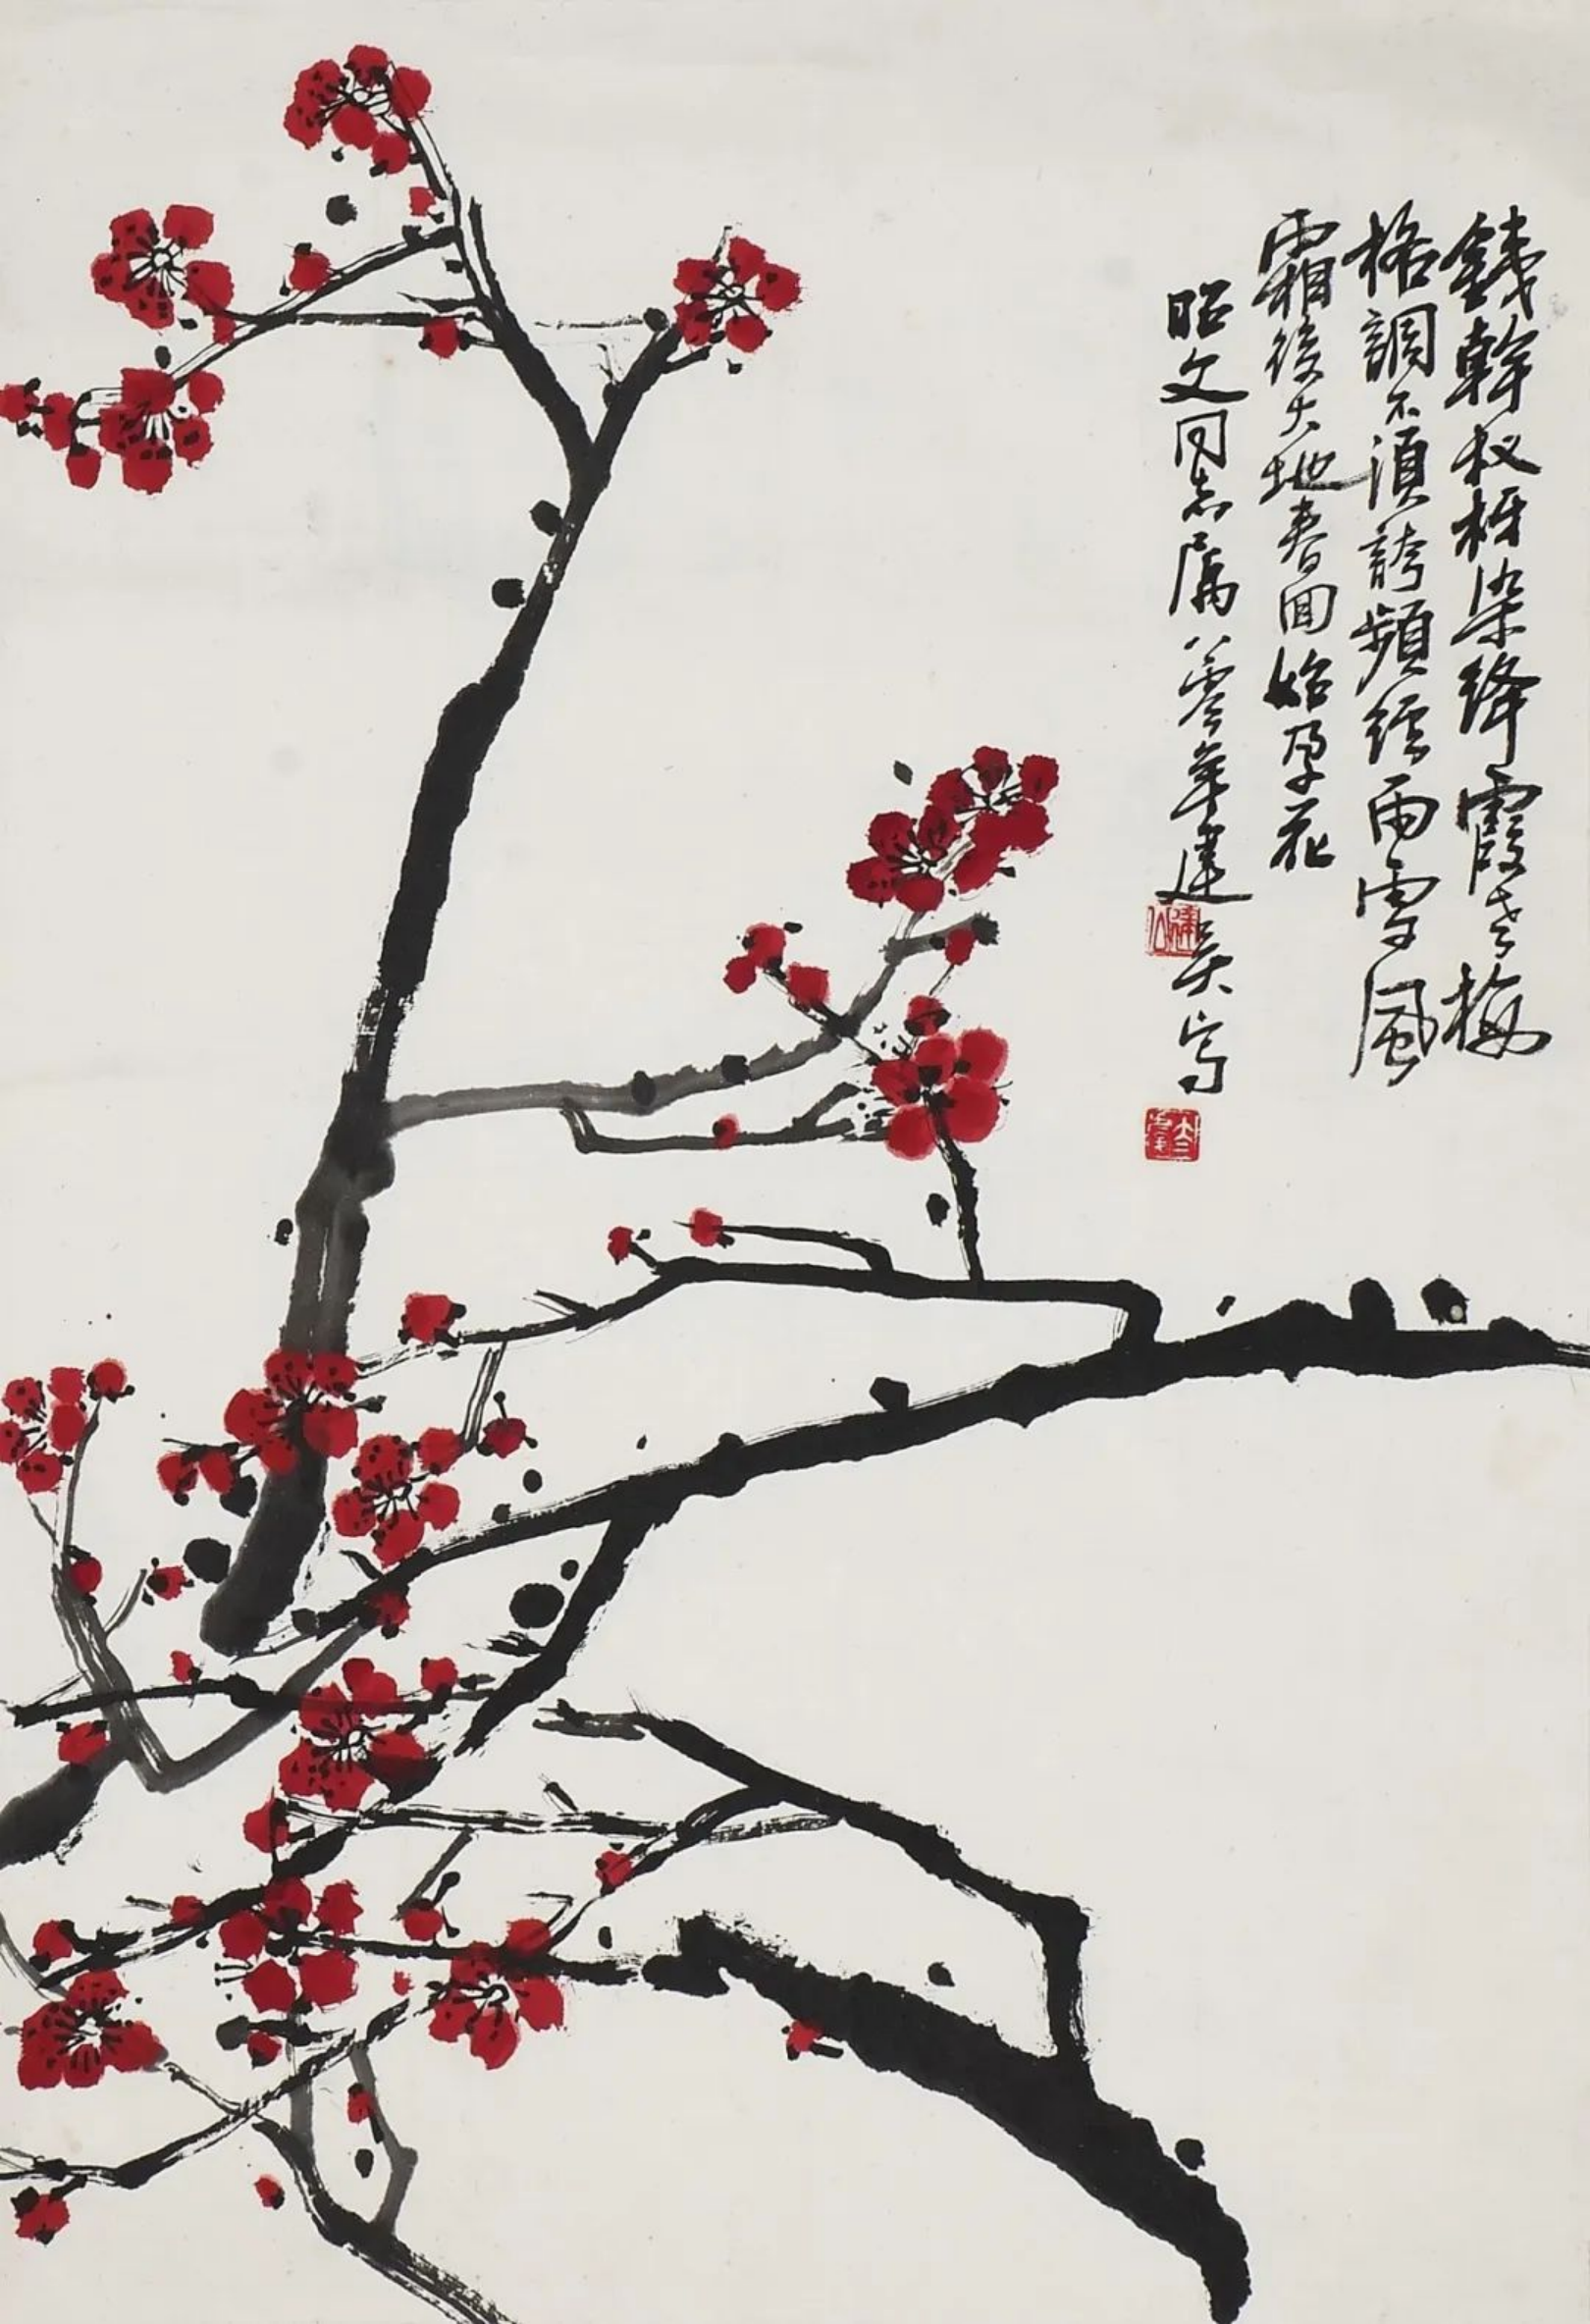 鐵幹杈枒染絳霞老梅
格調不須誇頻經雨雪風
霜後大地春回始孕花
昭文同志屬 八零年建吳寫